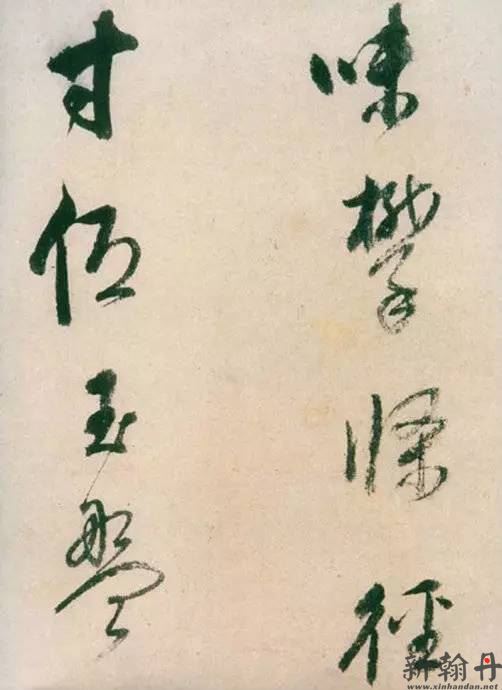 味攀條徑
寸伍玉盤
新翰丹
www.xinhandan.net